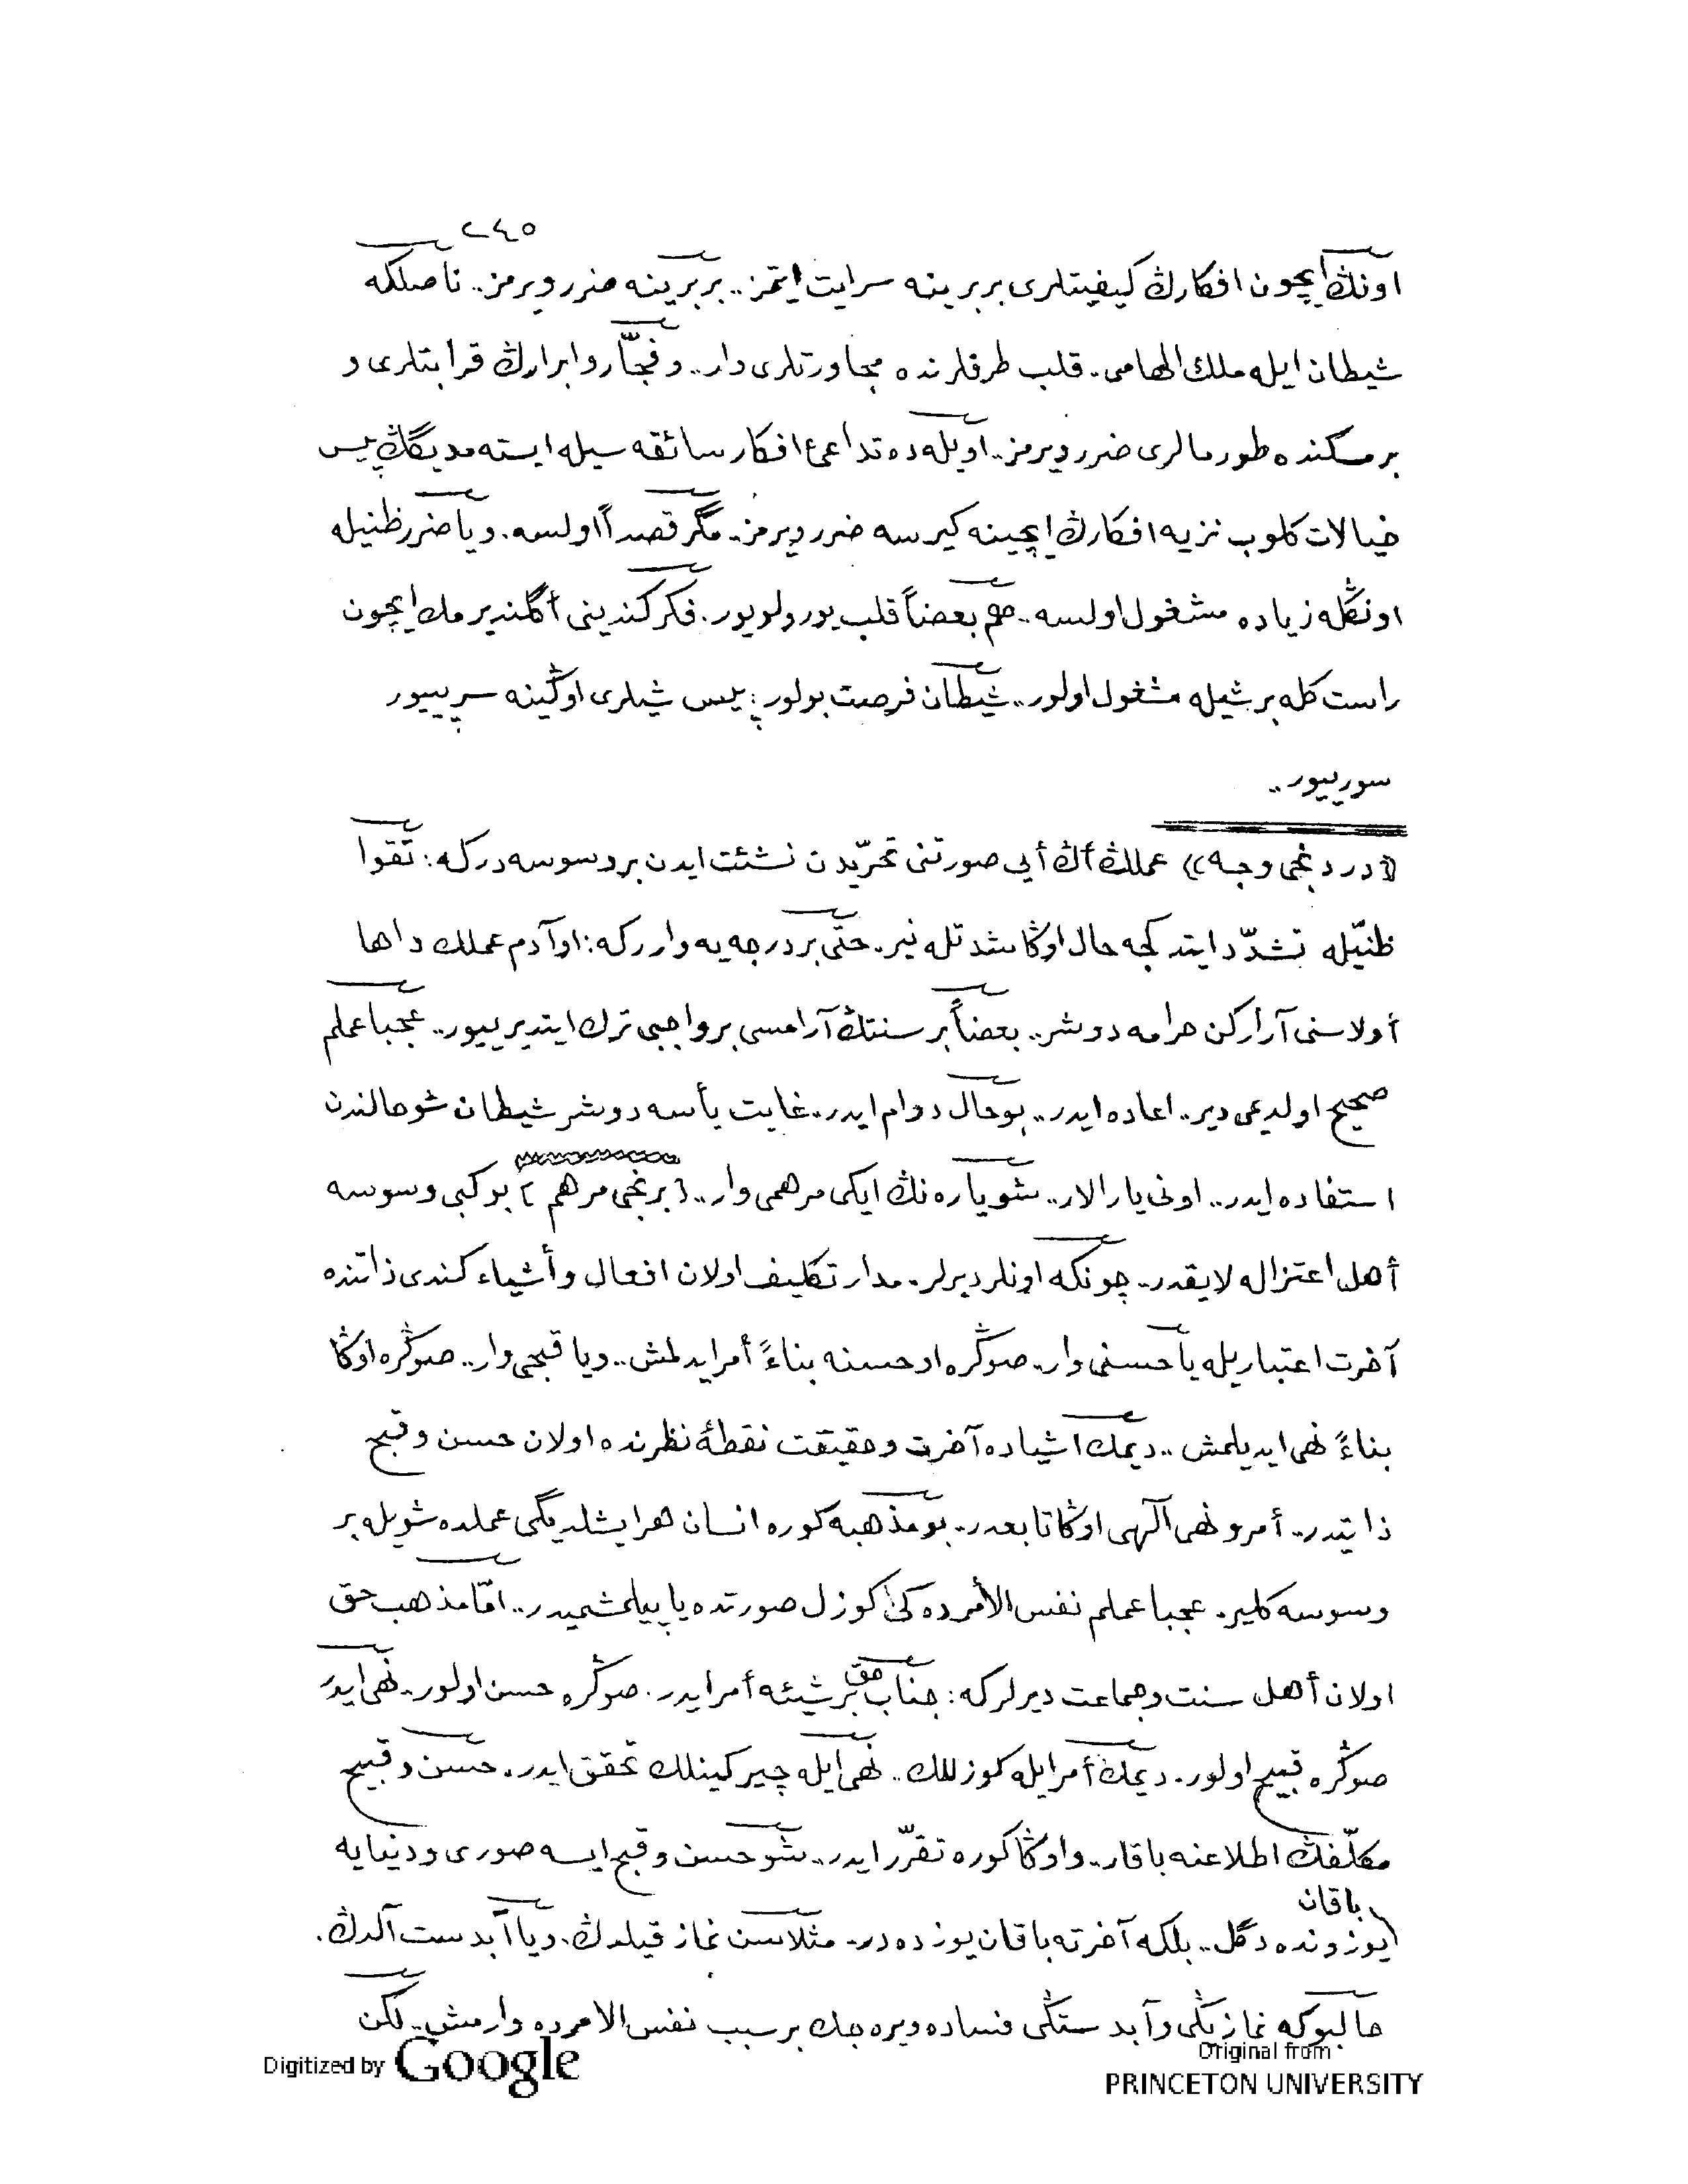 ٢٤٥
اونڭ ایچون افكارڭ كیفیتلری بربرینه سرایت ایتمز.. بربرینه ضرر ویرمز.. ناصلكه
شیطان ایله ملك الهامی. قلب طرفلرنده مجاورتلری وار.. و فجّار و ابرارڭ قرابتلری و
بر مسكنده طورمالری ضرر ویرمز.. اویله ده تداعئ افكار سائقه سیله ایسته مدیگڭ پیس
خیالات كلوب نزیه افكارڭ ایچینه كیرسه ضرر ویرمز. مگر قصداً اولسه. ویا ضرر ظنیله
اونڭله زیاده مشغول اولسه.. هم بعضاً قلب یورولویور. فكر كندینی أگلندیرمك ایچون
راست كله بر شیله مشغول اولور.. شیطان فرصت بولور؛ پیس شیلری اوڭینه سرپییور
سورییور..
«دردنجی وجه» عملڭ أڭ أیی صورتنی تحرّیدن نشئت ایدن بر وسوسه دركه: تقوا
ظنیّله تشدّد ایتدكجه حال اوڭا شدتله نیر. حتّی بر درجه یه وارركه: او آدم عملك داها
أولاسنی آراركن حرامه دوشر.. بعضاً بر سنتڭ آرامسی بر واجبی ترك ایتدیرییور.. عجبا عملم
صحیح اولدیمی دیر.. اعاده ایدر.. بو حال دوام ایدر. غایت یأسه دوشر شیطان شو حالندن
استفاده ایدر.. اونی یارالار.. شو یاره نڭ ایكی مرهمی وار.. [برنجی مرهم] بو كبی وسوسه
أهل اعتزاله لایقدر. چونكه اونلر دیرلر. مدار تكلیف اولان افعال و أشیاء كندی ذاتنده
آخرت اعتباریله یا حسنی وار. صوڭره او حسنه بناءً أمر ایدلمش.. ویا قبحی وار.. صوڭره اوڭا
بناءً نهی ایدیلمش.. دیمك اشیاده آخرت و حقیقت نقطۀ نظرنده اولان حسن و قبح
ذاتیدر. أمر و نهی آلٰهی اوڭا تابعدر. بو مذهبه كوره انسان هر ایشلدیگی عملده شویله بر
وسوسه كلیر. عجبا عملم نفس الأمرده كی كوزل صورتده یاپیلمشمیدر.. امّا مذهب حق
اولان أهل سنت و جماعت دیرلركه: جناب حق بر شیئه أمر ایدر. صوڭره حسن اولور. نهی ایدر
صوڭره قبیح اولور. دیمك أمر ایله كوزللك.. نهی ایله چیركینلك تحقق ایدر. حسن و قبح
مكلّفڭ اطلاعنه باقار. و اوڭا كوره تقرّر ایدر.. شو حسن و قبح ایسه صوری و دنیایه
باقان
یوزونده دگل.. بلكه آخرته باقان یوزده در. مثلا سن نماز قیلدڭ. ویا آبدست آلدڭ.
حالبوكه نمازیڭی و آبدستڭی فساده ویره جك بر سبب نفس الامرده وارمش. لكن
Digitized by Google
Original from
PRINCETON UNIVERSITY